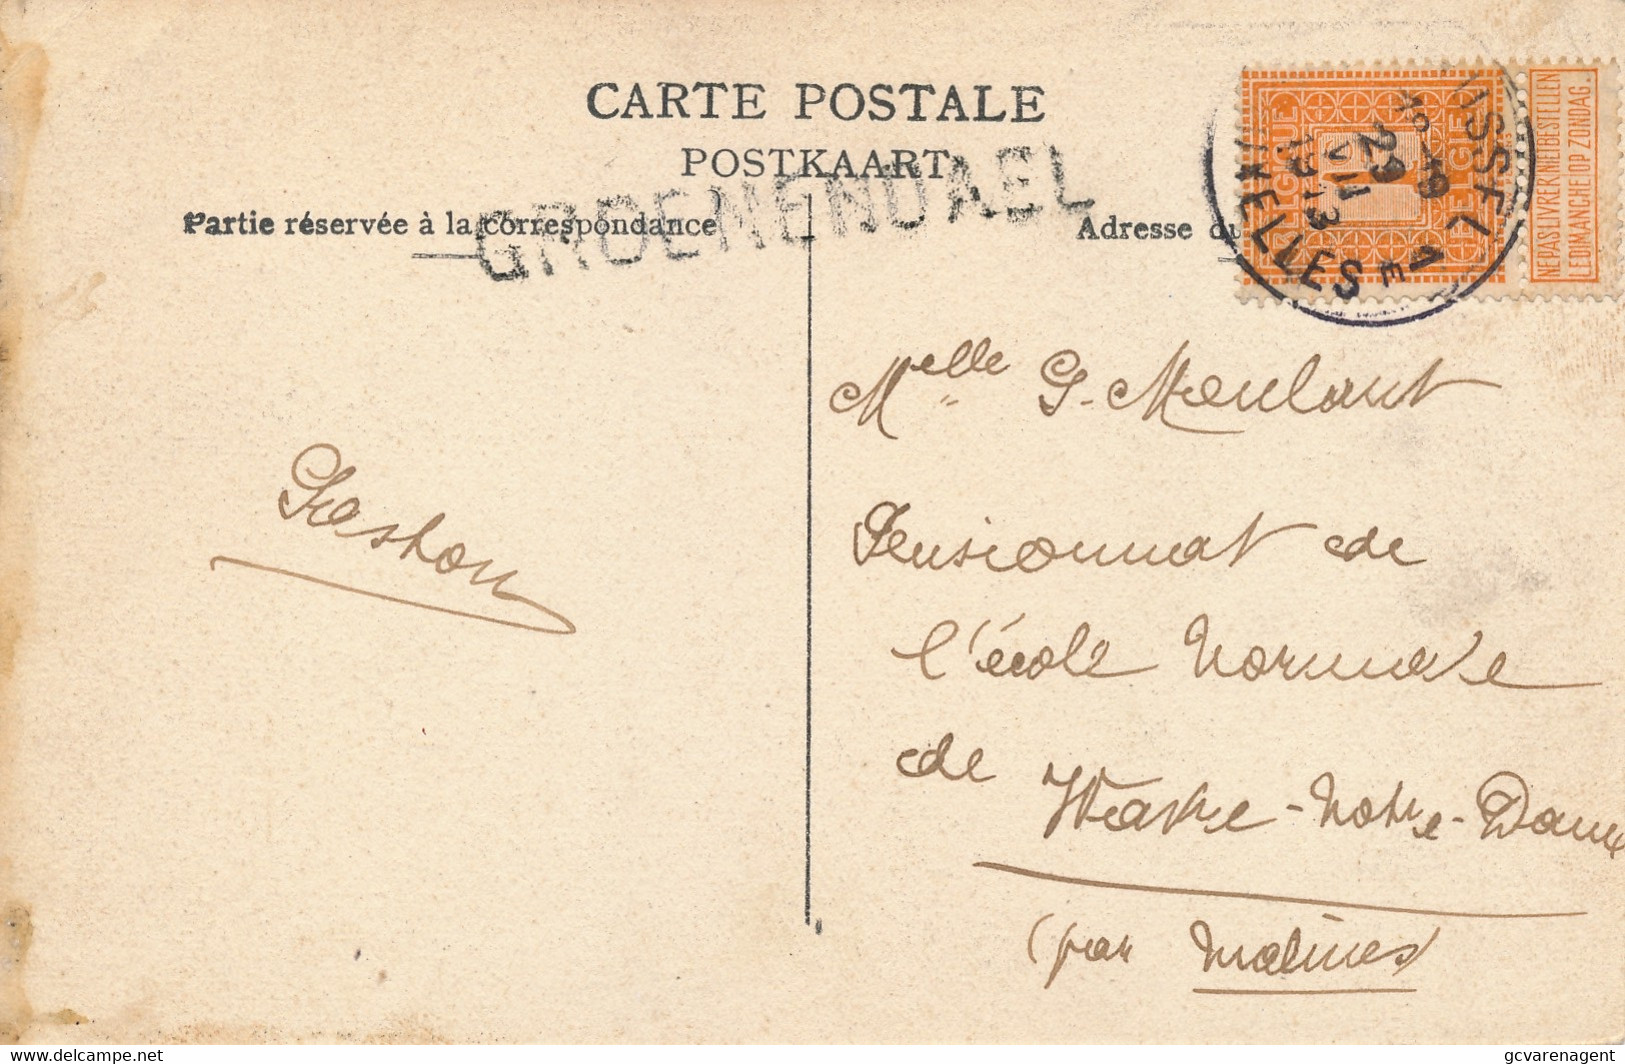 CARTE POSTALE
POSTKAART
GROENENDAEL
Partie réservée à la correspondance
Adresse du
BELGIQUE
BELGIE
NE PAS LIVRER
LE DIMANCHE
NIET BESTELLEN
OP ZONDAG.
IXELLES 1 E
18-19
29
VII
1913
Melle G. Meulant
Pensionnat de
l'école Normale
de
Wavre-Notre-Dame
(par Malines)
Gaston
gcvarenagent
https://www.delcampe.net